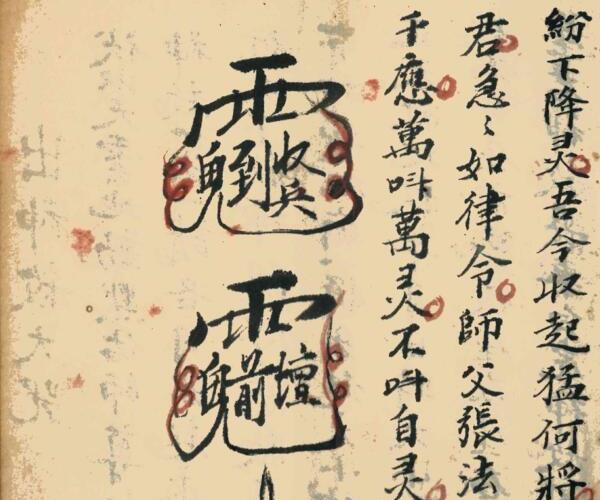 紛下降灵吾今收起猛何将
君急〻如律令師父張法
千應萬叫萬灵不叫自灵
收兵到
壇前